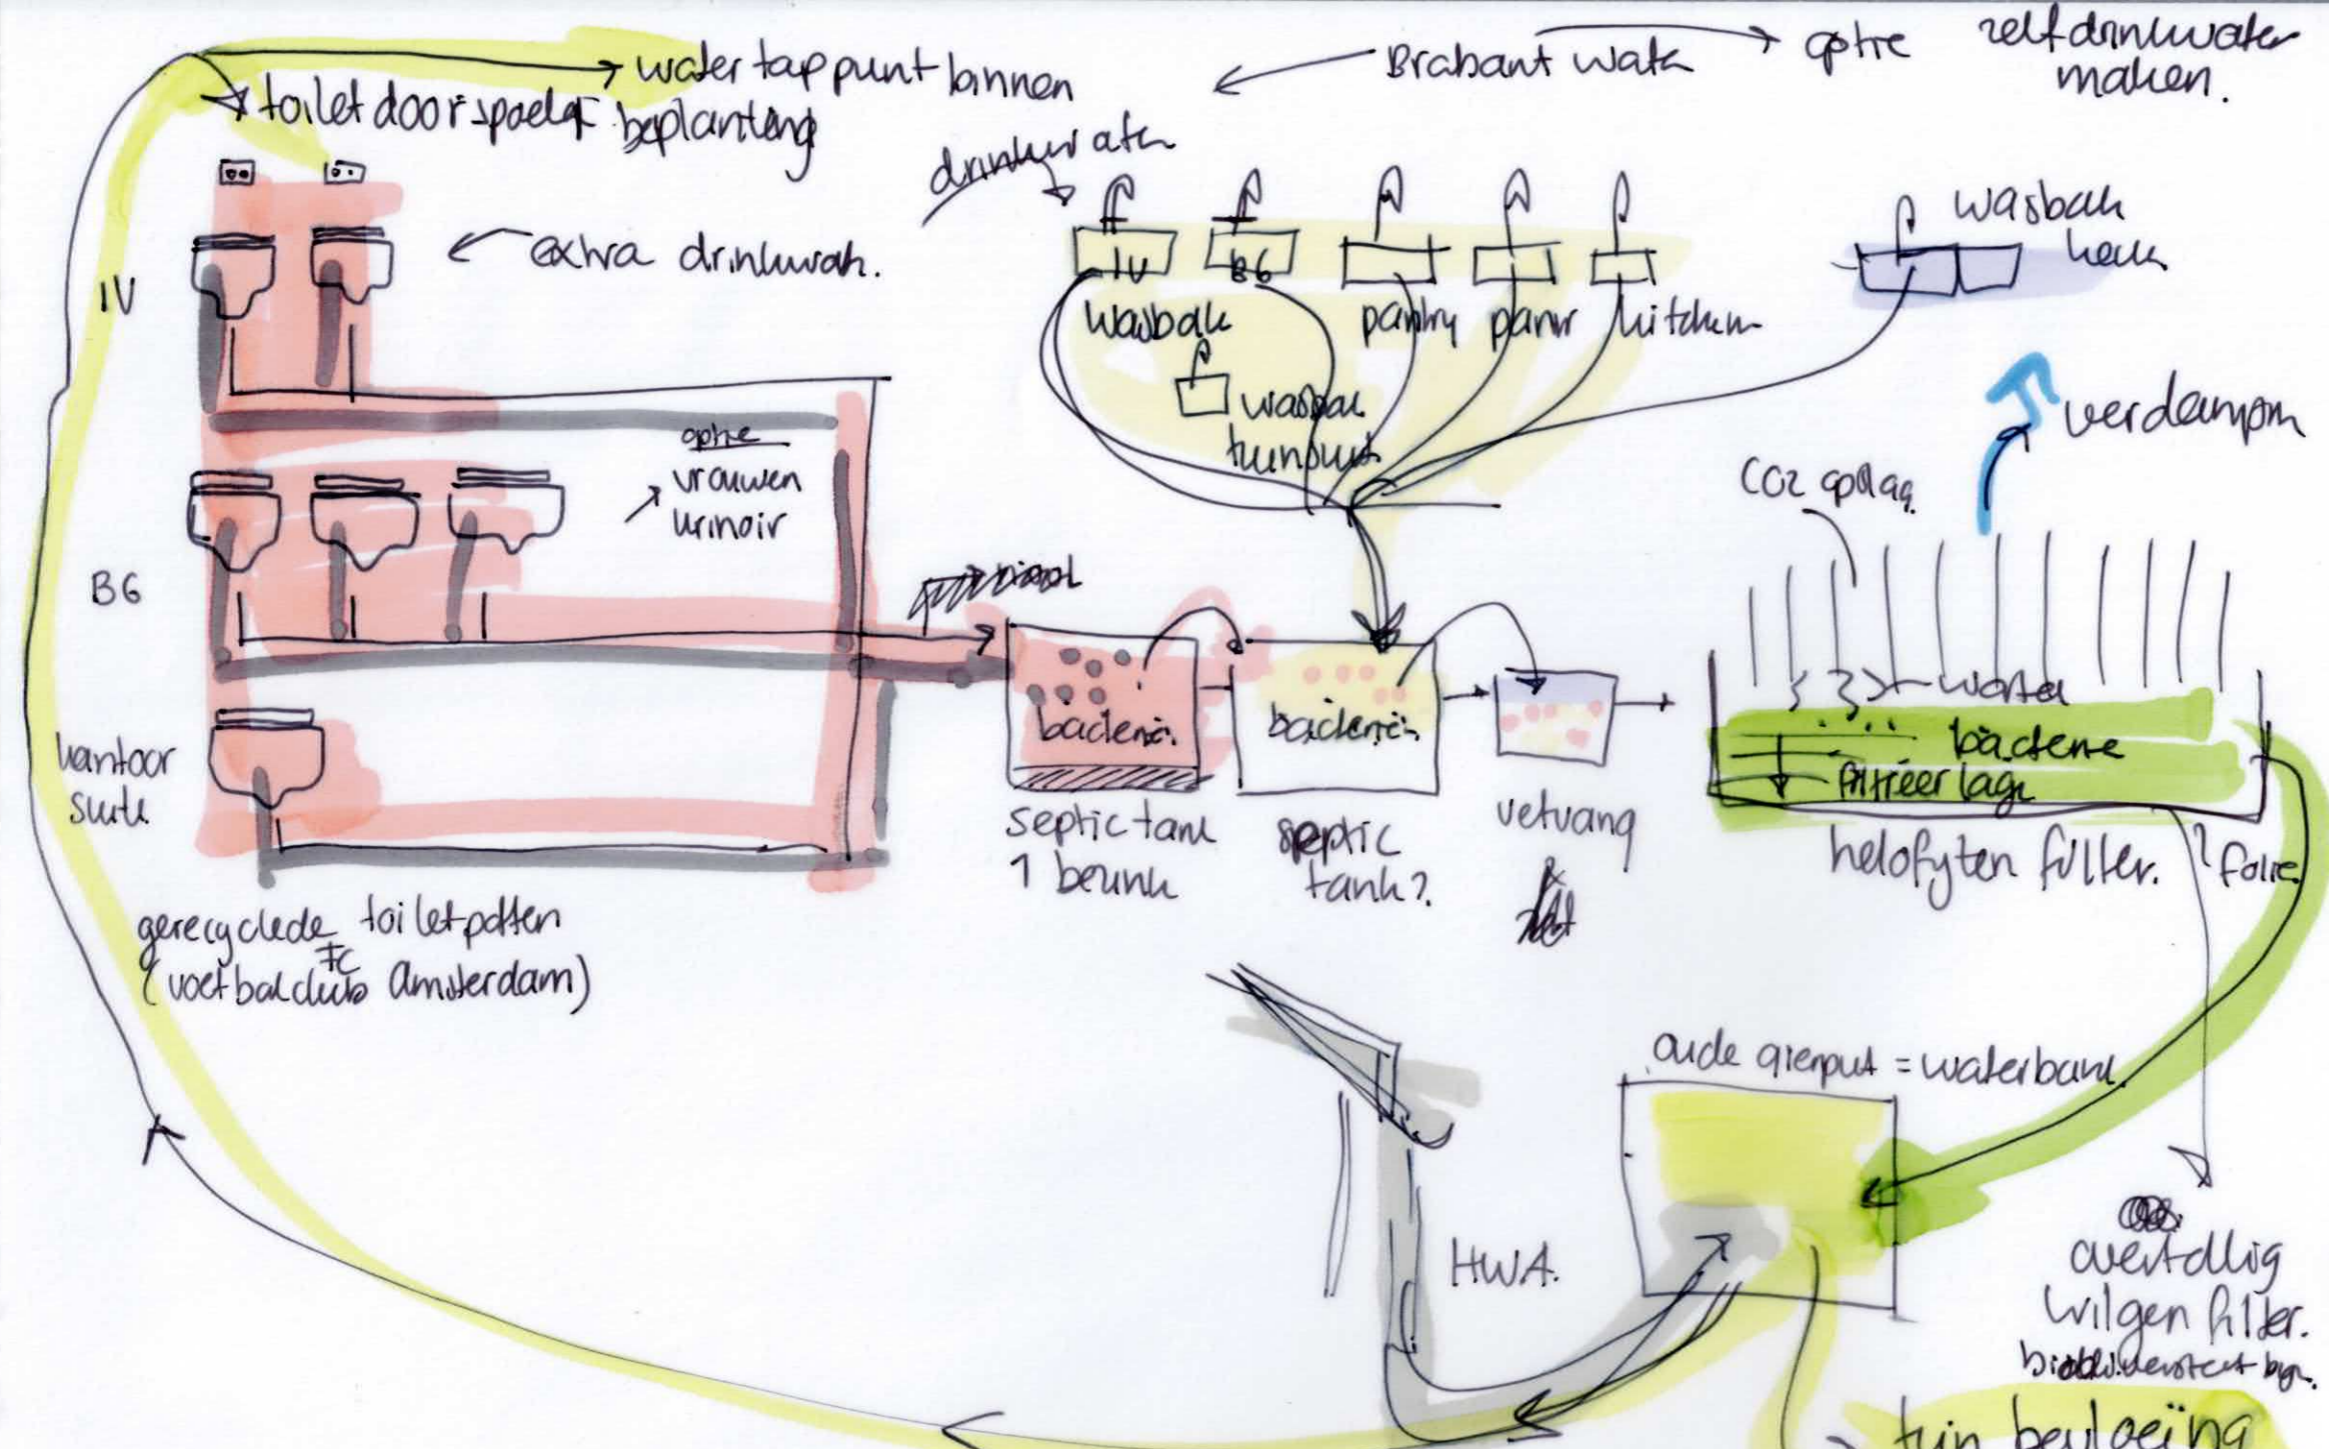 water tappunt binnen
beplanting
toilet doorspoelen
Brabant water
optie
zelf drinkwater
maken.
drinkwater
extra drinkwater.
IV
IV
B6
wasbak
pantry
kitchen
wasbak
tuinput
wasbak
verdampen
CO2 opslag.
optie
vrouwen
urinoir
B6
kantoor
suite
bacterie.
bacterie.
septic tank
septic
tank?
vetvang
wortel
bacterie
filtreer lage
helofyten filter.
folie.
gerecyclede toiletpotten
FC
(voetbalclub Amsterdam)
oude gierput = waterbank
HWA.
wilgen filter.
tuin bevloeiïng